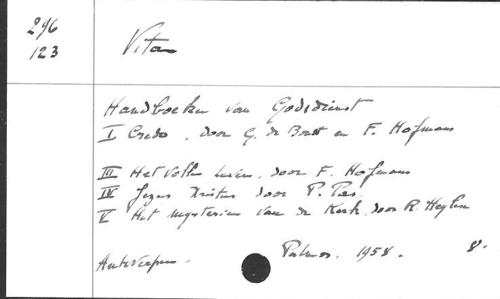 296
123
Vita
Handboeken van Godsdienst
I Credo, door G. de Bodt en F. Hofmans
III Het volle leven, door F. Hofmans
IV Jezus Kristus door P.
V Het mysterie van de Kerk, door R. Heylen
Antwerpen. Patmos. 1958. 8.